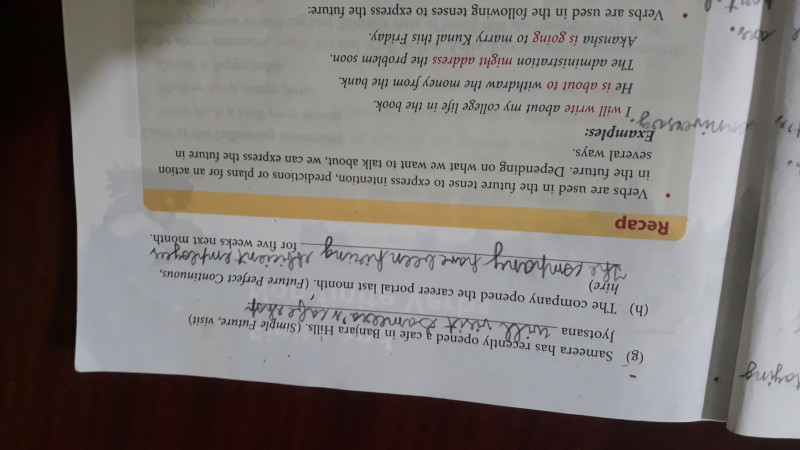 (g) Sameera has recently opened a cafe in Banjara Hills. (Simple Future, visit)
Jyotsana will visit Sameera's cafe shop
(h) The company opened the career portal last month. (Future Perfect Continuous,
hire)
The company have been hiring efficient employees for five weeks next month.
Recap
• Verbs are used in the future tense to express intention, predictions or plans for an action
in the future. Depending on what we want to talk about, we can express the future in
several ways.
Examples:
I will write about my college life in the book.
He is about to withdraw the money from the bank.
The administration might address the problem soon.
Akansha is going to marry Kunal this Friday.
• Verbs are used in the following tenses to express the future: